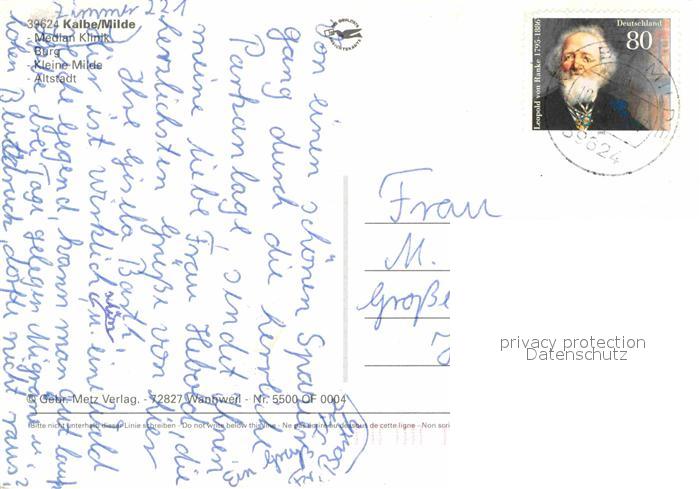 Zimmer 221
39624 Kalbe/Milde
- Median Klinik
- Burg
- Kleine Milde
- Altstadt
Von einen schönen Spazier
gang durch die herrliche
Parkanlage, sendet Ihnen
meine liebe Frau
herzlichsten Grüße von hier die
Ihre Gisela Barth
ist wirklich nur
Gegend, kann man gut lauf
drei Tage gelegen Migräne u.
hohen Blutdruck, dürfte nicht raus
© Gebr. Metz Verlag. - 72827 Wannweil - Nr. 5500 OF 0004
Bitte nicht unterhalb dieser Linie schreiben - Do not write below this line - Ne pas écrire au-dessous de cette ligne - Non scri
Leopold von Ranke 1795-1886
Deutschland
80
39624
Frau
M.
Große
privacy protection
Datenschutz